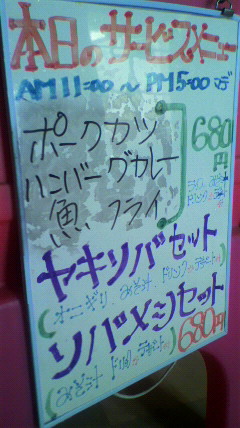 本日のサービスメニュー
AM11:00〜PM5:00まで
ポークカツ
ハンバーグカレー
魚フライ
680円
ヤキソバセット
(オニギリ、みそ汁、ドリンク、デザート付)
ソバメシセット
(みそ汁 ドリンク デザート付) 680円